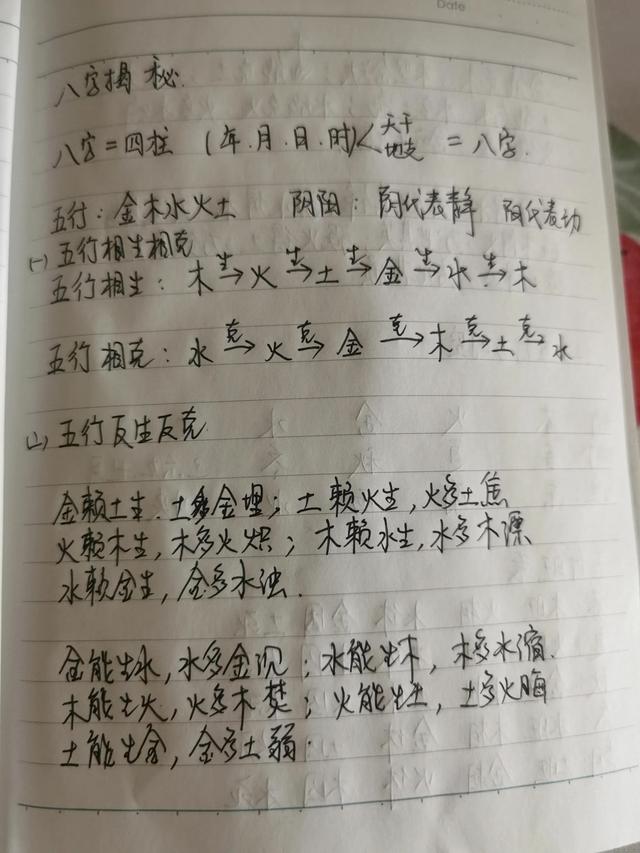 Date
八字揭秘.
八字=四柱 (年.月.日.时)< 天干 地支 = 八字.
五行: 金木水火土 阴阳: 阴代表静 阳代表动
(一) 五行相生相克
五行相生: 木 生→ 火 生→ 土 生→ 金 生→ 水 生→ 木
五行相克: 水 克→ 火 克→ 金 克→ 木 克→ 土 克→ 水
(二) 五行反生反克
金赖土生.土多金埋; 土赖火生,火多土焦
火赖木生,木多火炽; 木赖水生,水多木漂
水赖金生,金多水浊.
金能生水,水多金沉; 水能生木,木多水缩.
木能生火,火多木焚; 火能生土,土多火晦
土能生金,金多土弱.